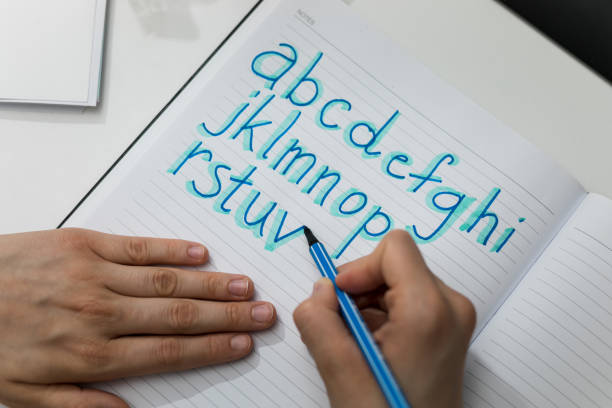 NOTES
abcdefghi
jklmnop
rstuv